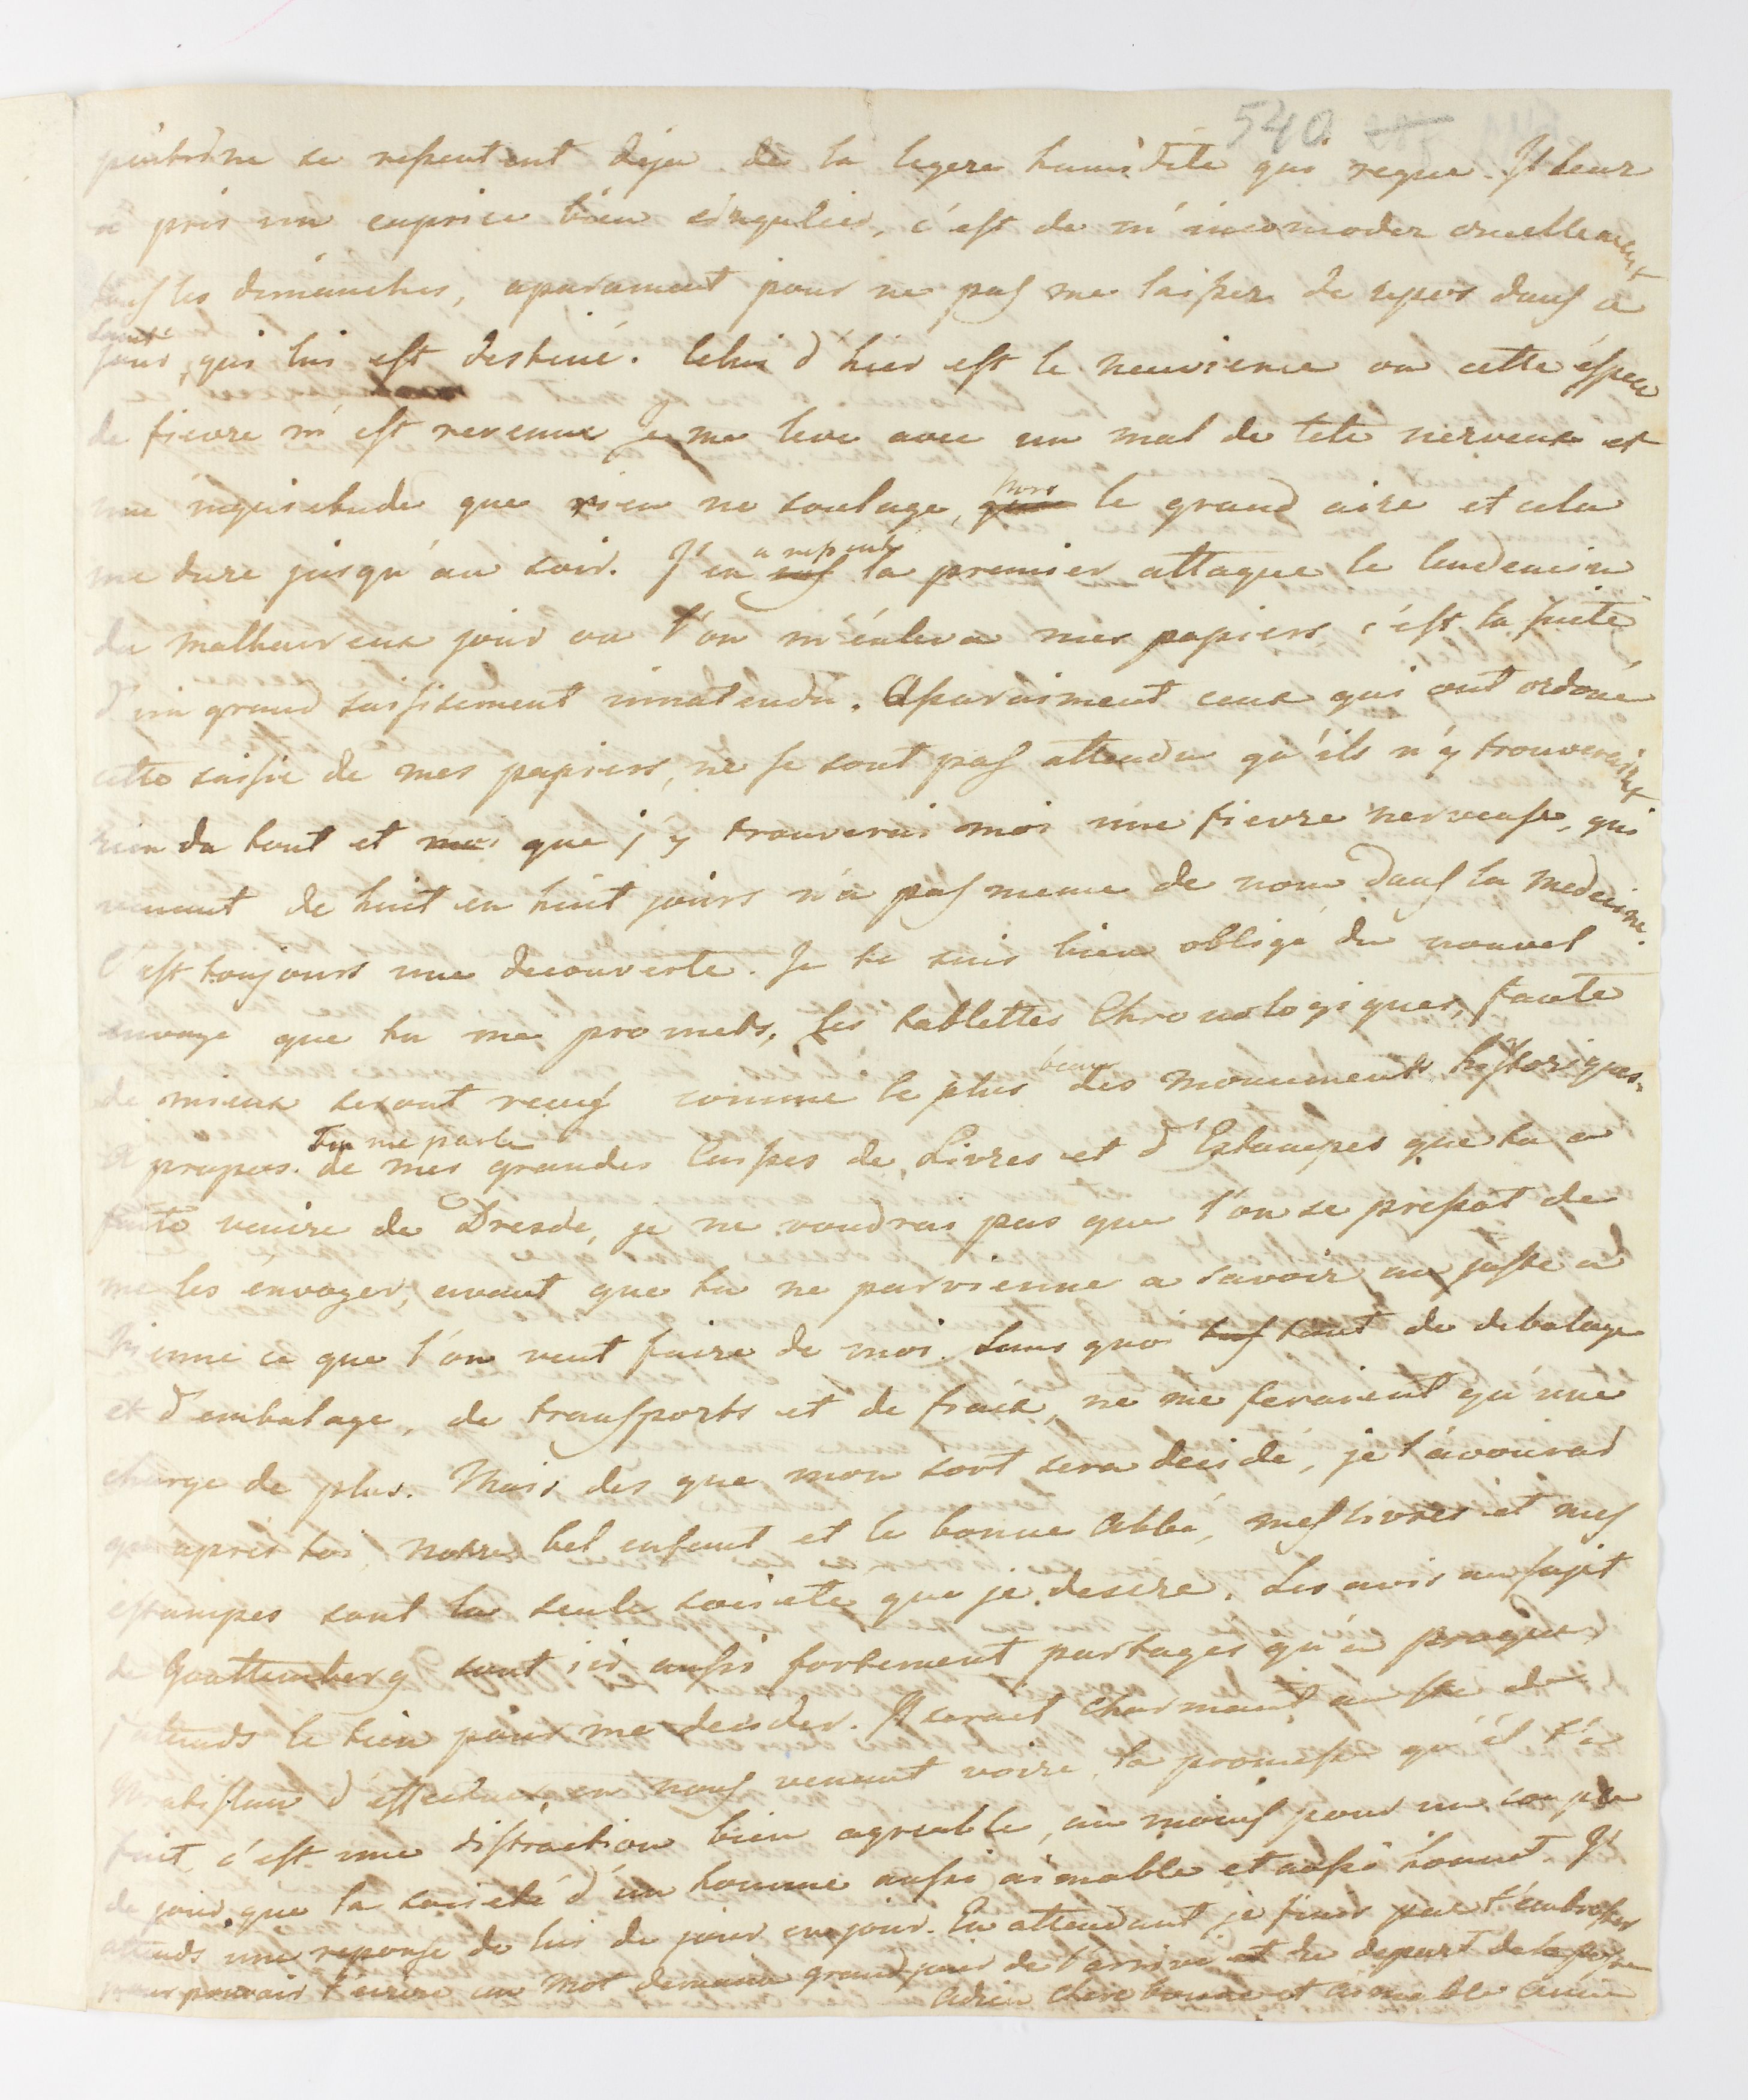 540
poitrine se resentent deja de la legere humidité qui regne. Il leur
a pris un caprice bien singulier, c'est de m'incomoder cruellement
tous les dimanches, aparament pour ne pas me laisser de repos dans ce
jour, qui lui est destiné. Celui d'hier est le neuvieme ou cette espece
de fievre m'est revenue je me leve avec un mal de tete nerveux et
une inquietude que rien ne soulage, hors le grand aire et cela
me dure jusqu'au soir. J'en a resenti la premier attaque le lendemain
du malheureux jour ou l'on m'enleva mes papiers, c'est la suite
d'un grand saisisement innatendu. Aparaiment ceux qui ont ordoné
cette saisie de mes papiers, ne se sont pas attendu qu'ils n'y trouveraint
rien du tout et que j'y trouverai moi une fievre nerveuse, qui
venant de huit en huit jours n'a pas meme de nom dans la medecine.
C'est toujours une decouverte. Je te suis bien obligé du nouvel
envoye que tu me promets, les tablettes Chronologiques, faute
de mieux seront reçus comme le plus beau des monuments historiques.
A propos. Tu me parle de mes grandes Caisses de Livres et d'Estampes que tu a
faite venire de Dresde, je ne voudrai pas que l'on se pressat de
me les envoyer, avant que tu ne parvienne a savoir au juste à
Vienne ce que l'on veut faire de moi. Sans quoi tant de debalage
et d'embalage, de transports et de fraix, ne me feraient qu'une
charge de plus. Mais des que mon sort sera decidé, je t'avouerai
qu'apres toi, notre bel enfant et le bonne Abbé, mes livres et mes
estampes sont la seule societé que je desire. Les avis au sujet
de Gouttemberg sont ici aussi fortement partages qu'a prague,
j'atends le tien pour me decider. Il serait charmant au
Wratislaw d'effectuer, en nous venant voire, la promesse qu'il t'a
fait, c'est une distraction bien agreable, au moins pour un couple
de jour, que la societé d'un homme aussi aimable et aussi honnet. J'
attends une reponse de lui de jour en jour. En attendant je finis par t'embrasser
pour pouvoir t'ecrire un mot demain grand jour de l'arrivé et du depart de la poste
Adieu chere bonne et aimable amie